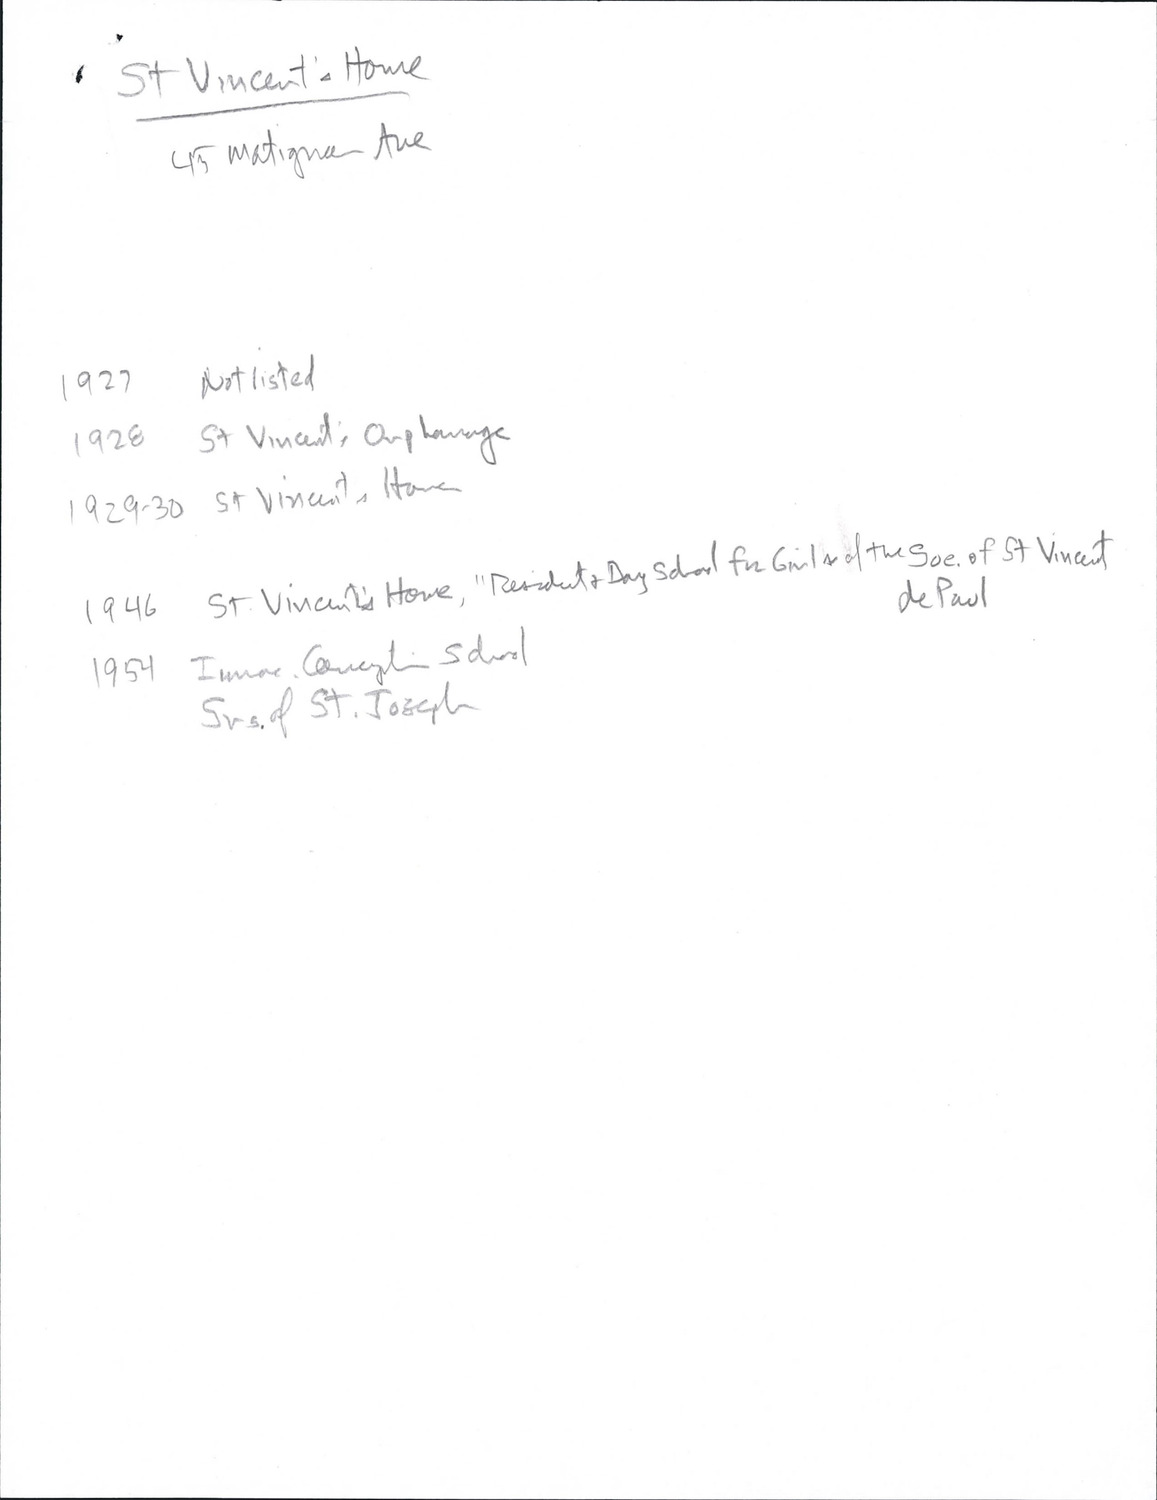 St Vincent's Home
45 Matignon Ave
1927 Not listed
1928 St Vincent's Orphanage
1929-30 St Vincent's Home
1946 St. Vincent's Home, "Resident & Day School for Girls of the Soc. of St Vincent
de Paul
1954 Immac. Conception School
Srs. of St. Joseph